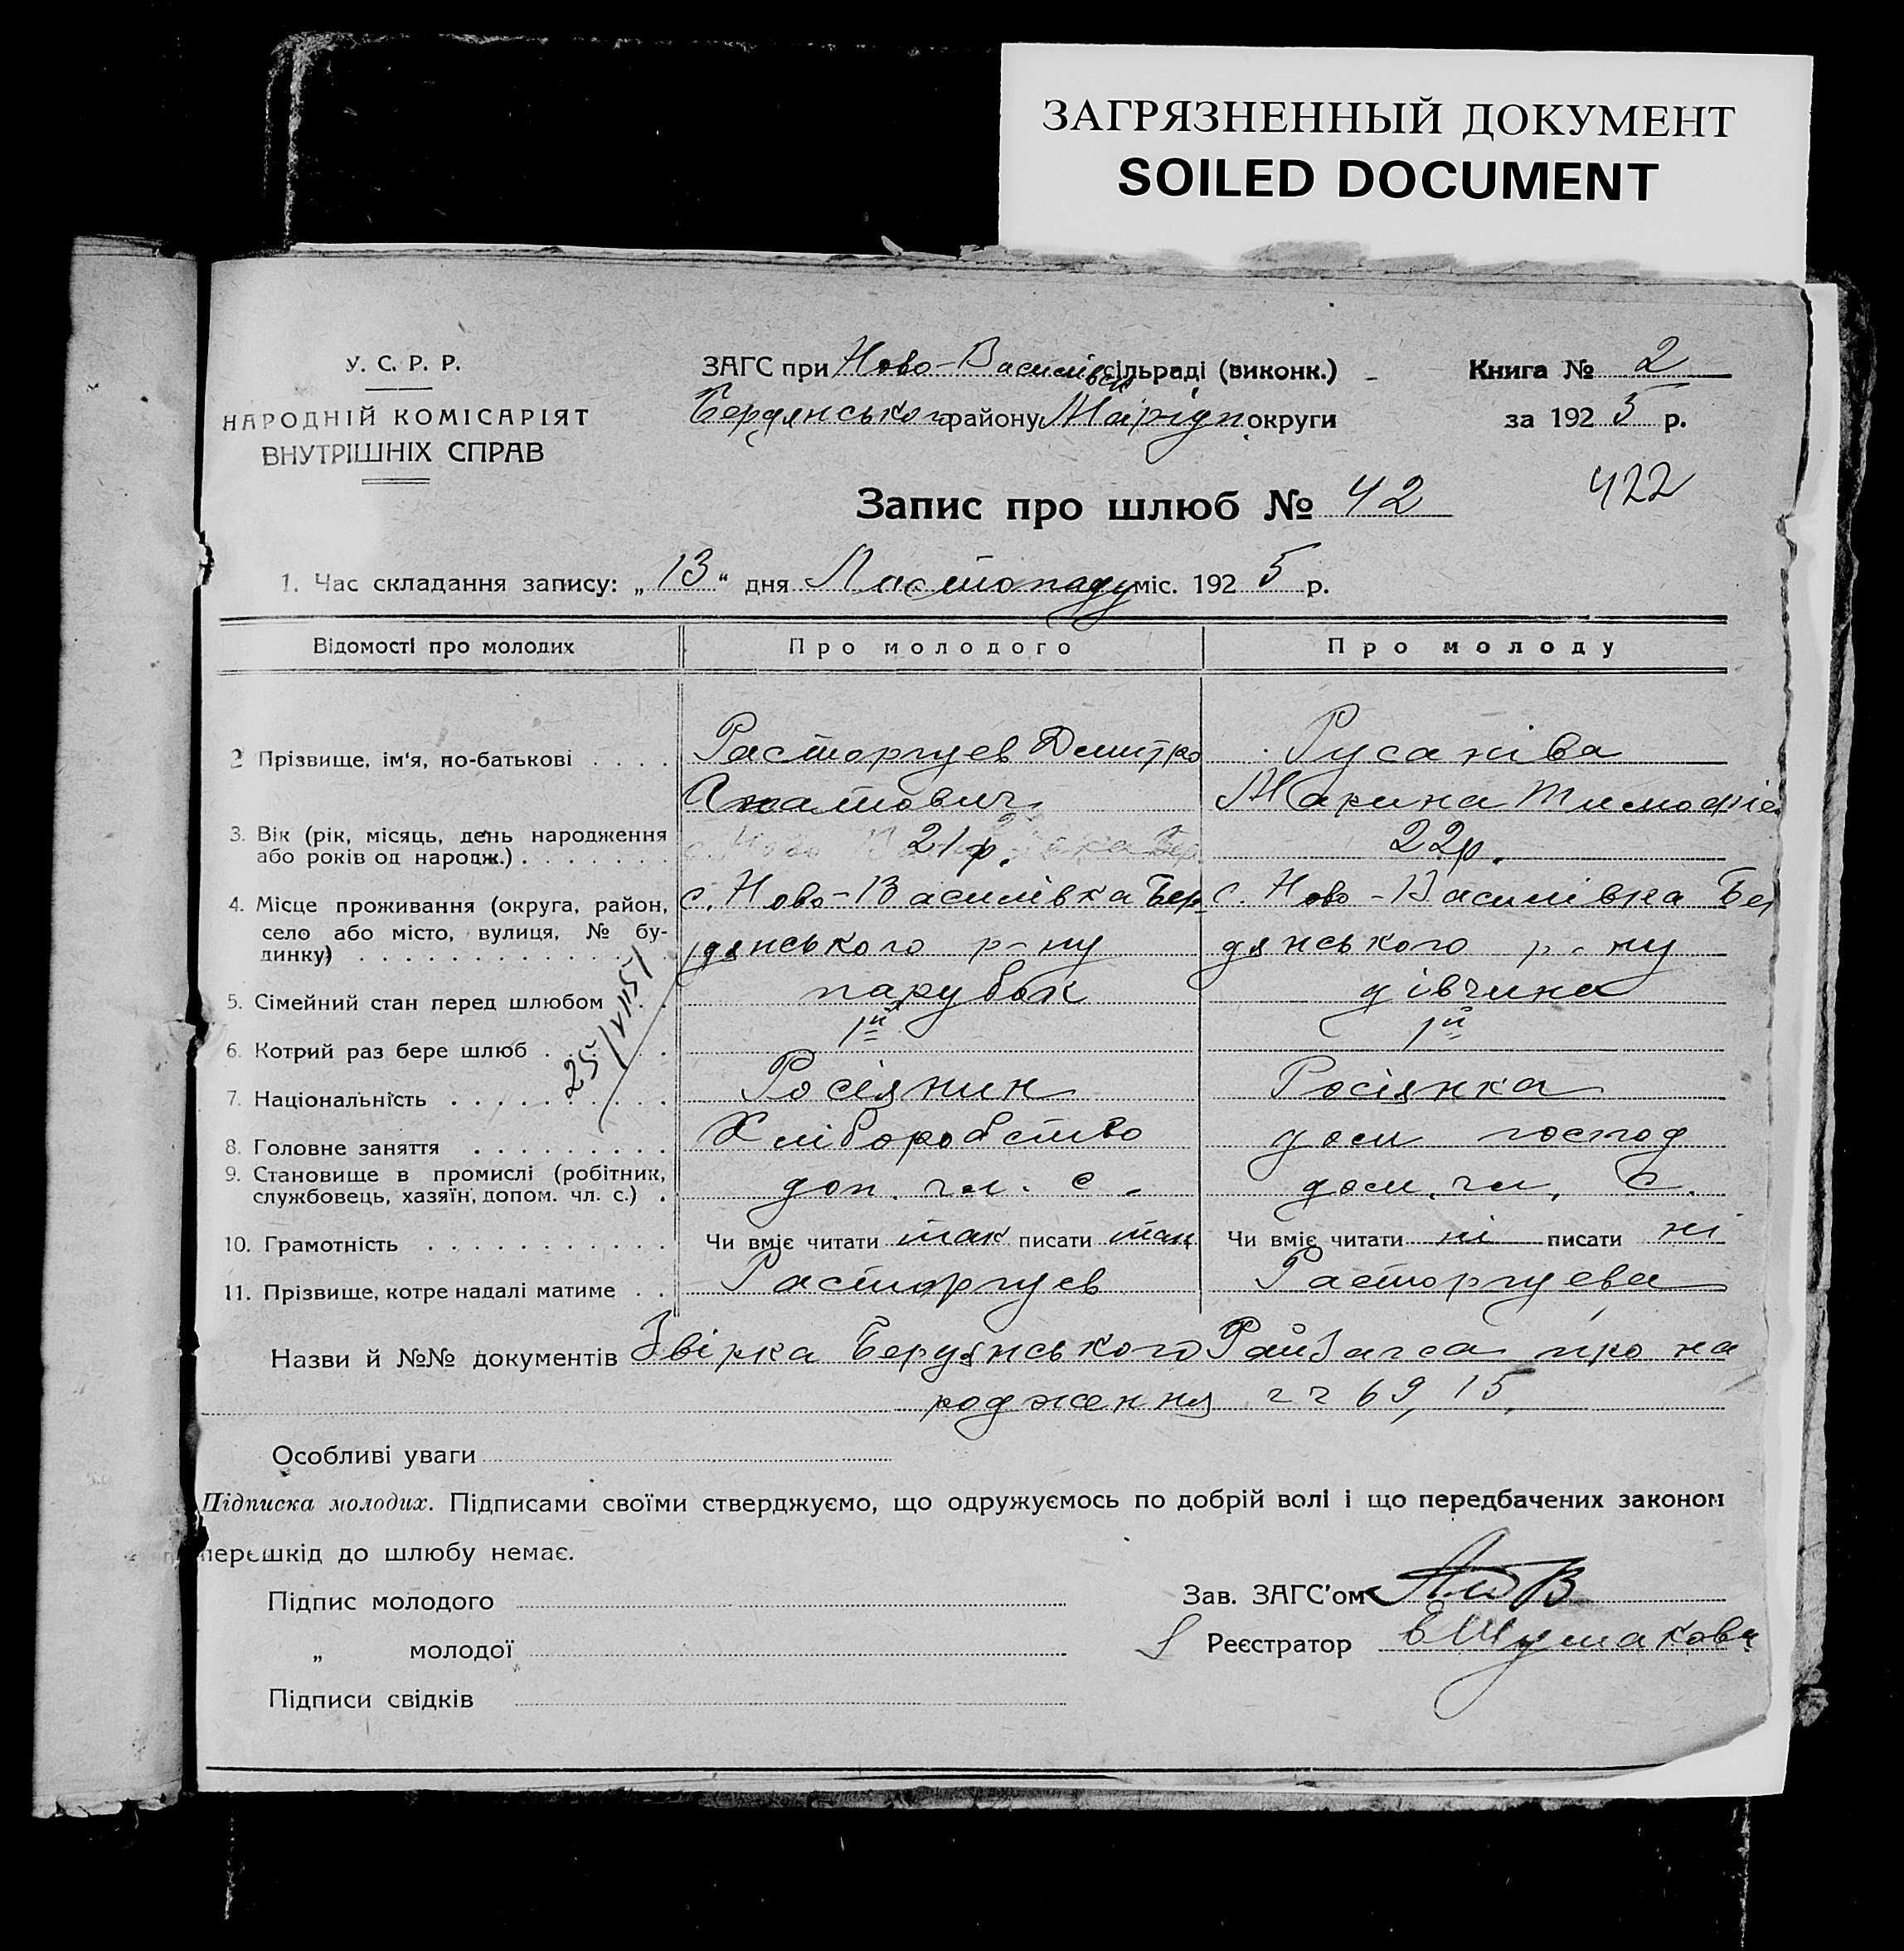 ЗАГРЯЗНЕННЫЙ ДОКУМЕНТ
SOILED DOCUMENT
У. С. Р. Р.
НАРОДНІЙ КОМІСАРІЯТ
ВНУТРІШНІХ СПРАВ
ЗАГС при Ново-Василівск сільраді (виконк.)
Бердянського району Маріуп округи
Книга № 2
за 1925 р.
Запис про шлюб № 42
422
1. Час складання запису: „13“ дня Листопаду міс. 1925 р.
Відомості про молодих Про молодого Про молоду
2 Прізвище, ім'я, по-батькові . . . . Расторгуев Дмитро Русанівa
Ипатович Марина Тимофіе
3. Вік (рік, місяць, день народження
або років од народж.) . . . . . . . 21 р. 22 р.
4. Місце проживання (округа, район, с. Ново-Василівка Бер с. Ново-Василівка Бер
село або місто, вулиця, № бу-
динку) . . . . . . . . . . . . . дянського р-ну дянського р-ну
5. Сімейний стан перед шлюбом парубок дівчина
6. Котрий раз бере шлюб . . . . 1й 1й
25/VII 51
7. Національність . . . . . . . . . . Росіянин Росіянка
8. Головне заняття . . . . . . . . . Хліборобство дом господ
9. Становище в промислі (робітник,
службовець, хазяїн, допом. чл. с.) . доп. чл. с. дом. чл. с.
10. Грамотність . . . . . . . . . . . Чи вміє читати так писати так Чи вміє читати ні писати ні
11. Прізвище, котре надалі матиме . . Расторгуев Расторгуева
Назви й №№ документів Звірка Бердянського РайЗагса про на
родження чч 69, 15.
Особливі уваги
Підписка молодих. Підписами своїми стверджуємо, що одружуємось по добрій волі і що передбачених законом
перешкід до шлюбу немає.
Підпис молодого
„ молодої
Підписи свідків
Зав. ЗАГС'ом
Реєстратор в Шумакова